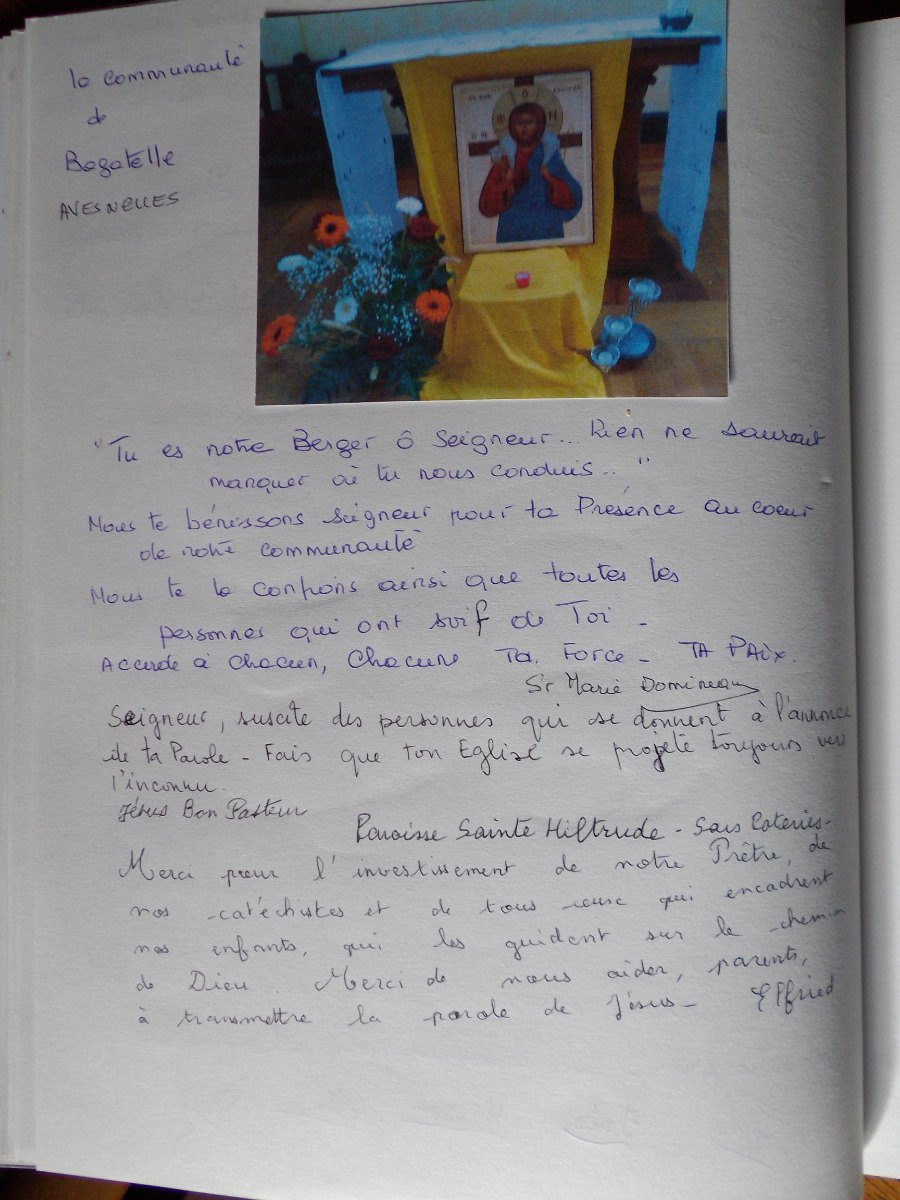 la communauté
de
Bagatelle
AVESNELLES
"Tu es notre Berger ô Seigneur... Rien ne saurait
manquer où tu nous conduis.. "
Nous te bénissons Seigneur pour ta Présence au coeur
de notre communauté
Nous te la confions ainsi que toutes les
personnes qui ont soif de Toi -
Accorde à chacun, Chacune Ta Force - TA PAix.
Sr Marie
Seigneur, suscite des personnes qui se donnent à l'annonce
de ta Parole - Fais que ton Eglise se projète toujours vers
l'inconnu.
Jésus Bon Pasteur
Paroisse Sainte Hiltrude - Sars Poteries-
Merci pour l'investissement de notre Prêtre, de
nos catéchistes et de tous ceux qui encadrent
nos enfants, qui les guident sur le chemin
de Dieu. Merci de nous aider, parents,
à transmettre la parole de Jésus - Elfried